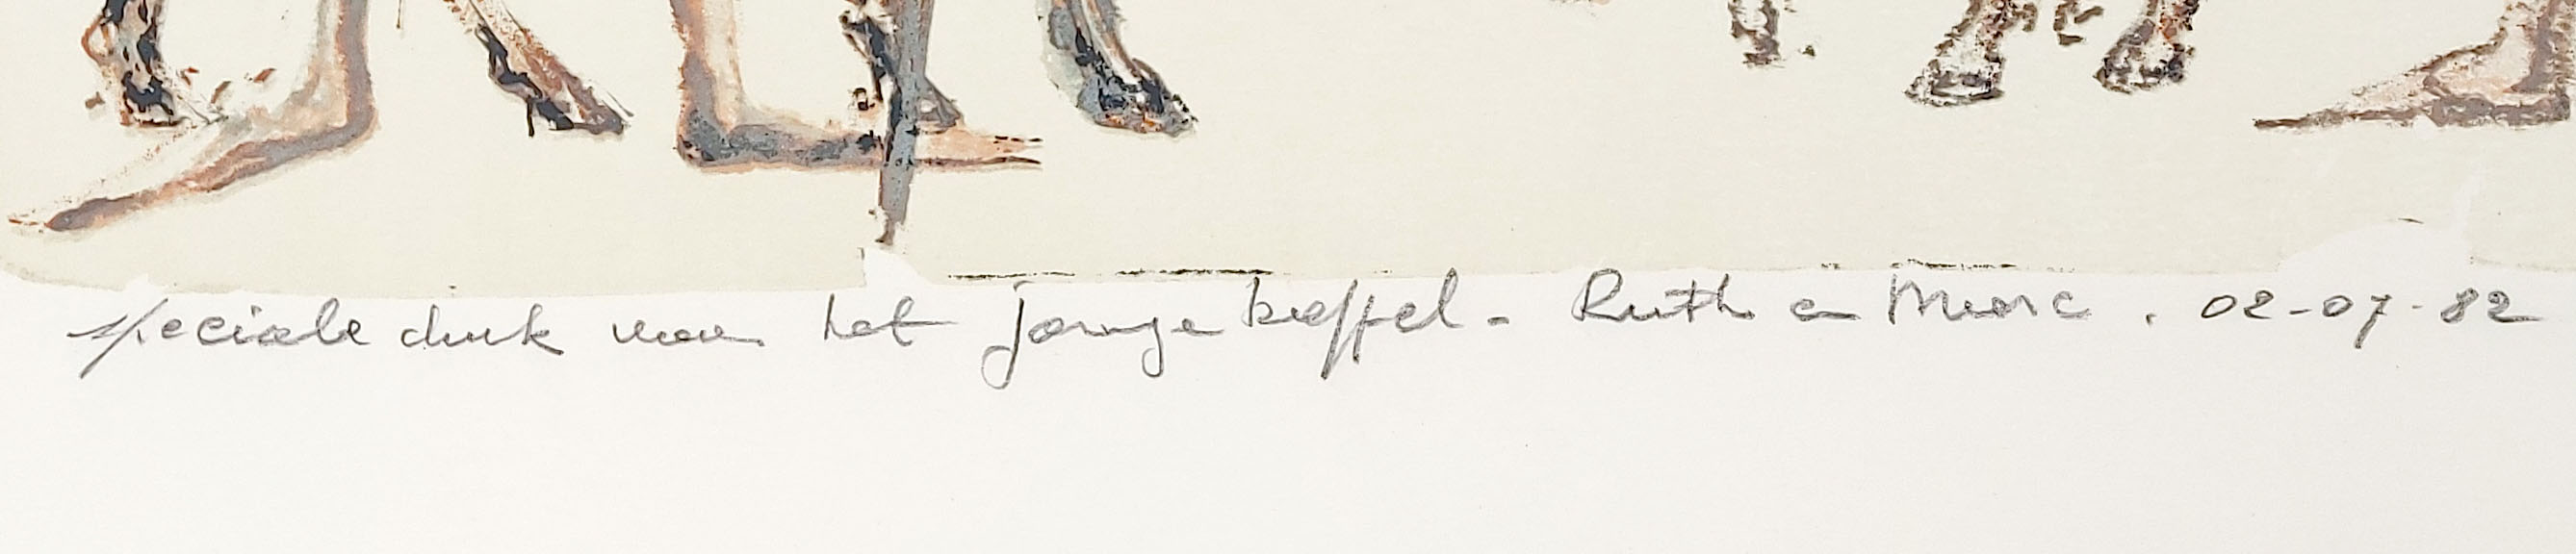 speciale druk voor het jonge koppel - Ruth en Marc . 02-07-82